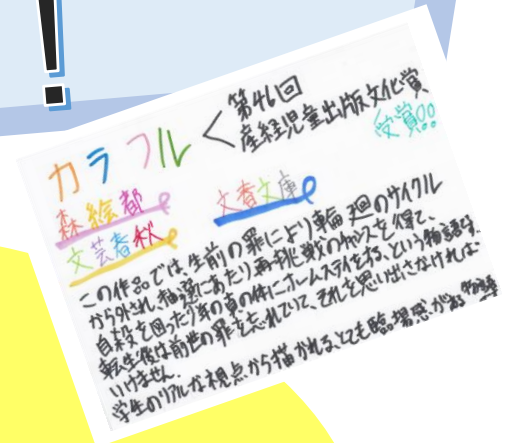 !
カラフル
第46回
産経児童出版文化賞
受賞!!
森絵都
文春文庫
文芸春秋
この作品では、生前の罪により輪廻のサイクル
から外され、抽選にあたり再挑戦のチャンスを得て、
自殺を図った少年の真の体にホームステイをする、という物語です。
転生後は前世の罪を忘れていて、それを思い出さなければ
いけません。
学生のリアルな視点から描かれる、とても臨場感がある